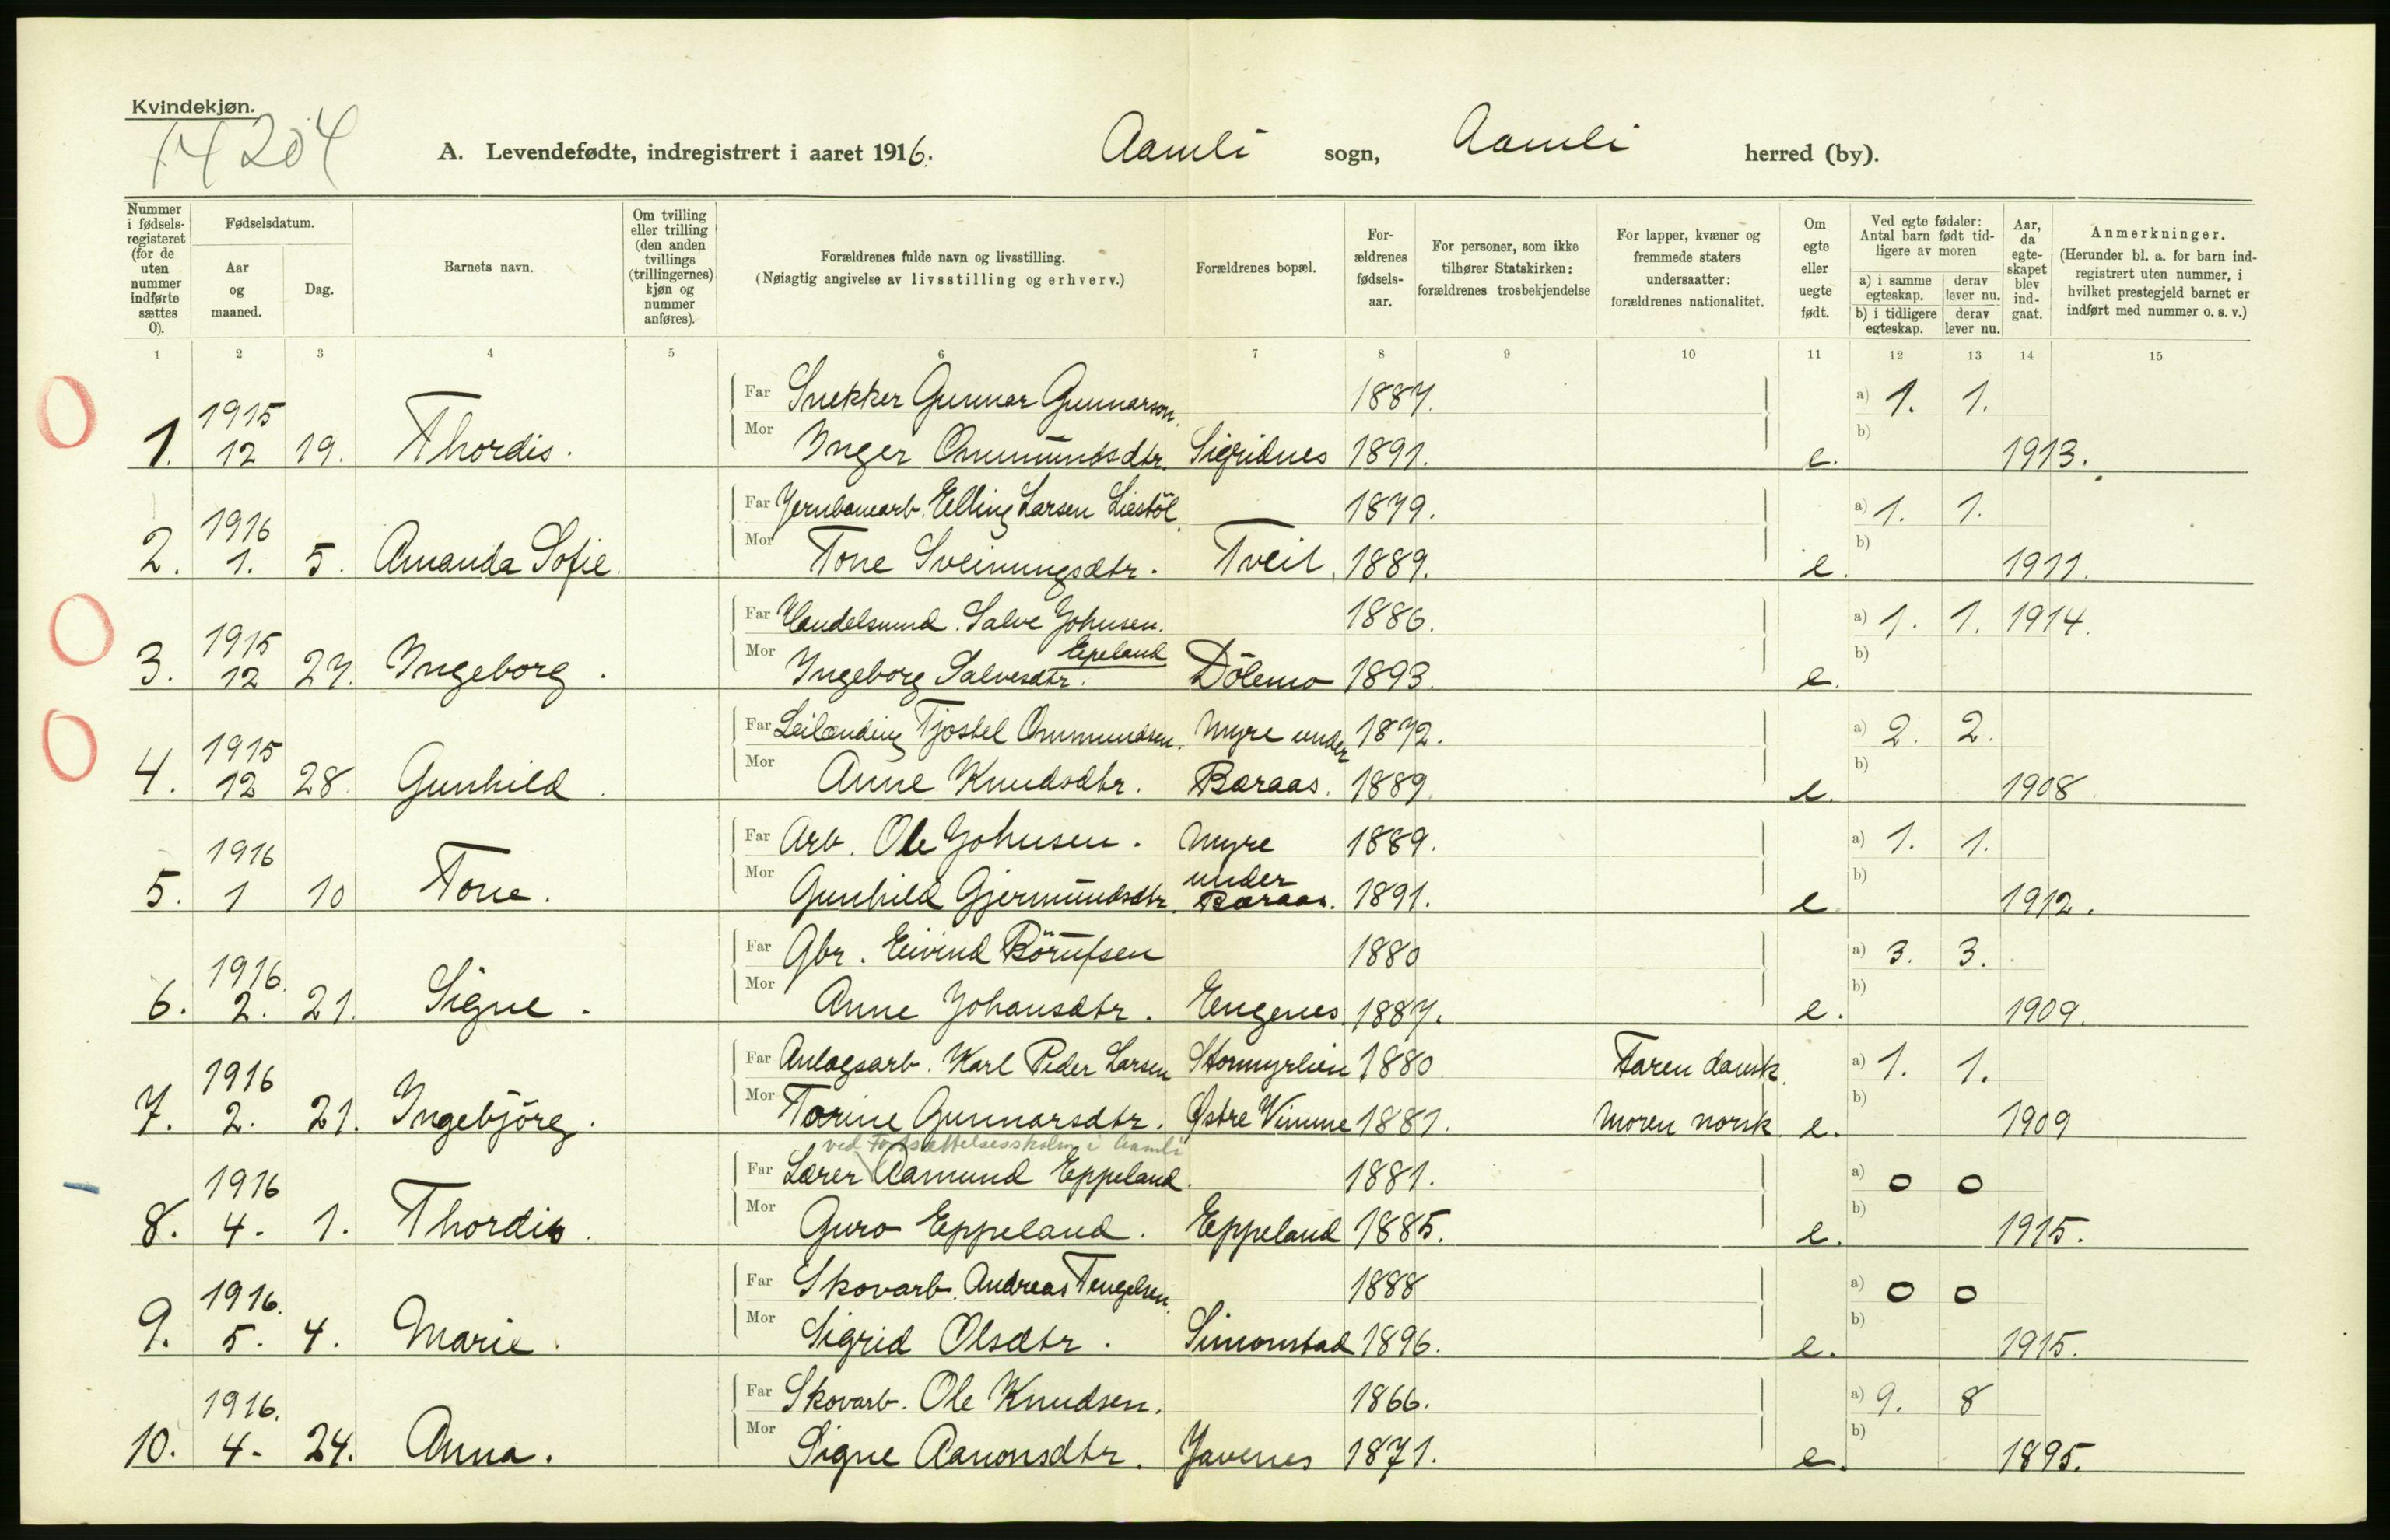 Kvindekjøn.
14204
A. Levendefødte, indregistrert i aaret 1916. Aamli sogn, Aamli herred (by).
Nummer i fødsels-registeret (for de uten nummer indførte sættes 0).
Fødselsdatum.
Aar og maaned.
Dag.
Barnets navn.
Om tvilling eller trilling (den anden tvillings (trillingernes) kjøn og nummer anføres).
Forældrenes fulde navn og livsstilling.
(Nøiagtig angivelse av livsstilling og erhverv.)
Forældrenes bopæl.
For-ældrenes fødsels-aar.
For personer, som ikke tilhører Statskirken: forældrenes trosbekjendelse
For lapper, kvæner og fremmede staters undersaatter: forældrenes nationalitet.
Om egte eller uegte født.
Ved egte fødsler: Antal barn født tid-ligere av moren
a) i samme egteskap.
derav lever nu.
b) i tidligere egteskap.
derav lever nu.
Aar, da egte-skapet blev ind-gaat.
Anmerkninger.
(Herunder bl. a. for barn ind-registrert uten nummer, i hvilket prestegjeld barnet er indført med nummer o. s. v.)
1 2 3 4 5 6 7 8 9 10 11 12 13 14 15
1915 Far Snekker Gunnar Gunnarson. 1887. a) 1. 1.
1. 12 19. Thordis. Mor Inger Ommundsdtr. Sigridnes 1891. e. b) 1913.
1916 Far Jernbanearb. Elling Larsen Liestöl. 1879. a) 1. 1.
2. 1. 5. Amanda Sofie. Mor Tone Sveinungsdtr. Tveit. 1889. e. b) 1911.
1915 Far Handelsmnd. Salve Johnsen. 1886. a) 1. 1. 1914.
Epeland
3. 12 27. Ingeborg. Mor Ingeborg Salvesdtr. Dölemo 1893. e. b)
1915 Far Leilænding Tjostel Ommundsen. Myre under 1872. a) 2. 2.
4. 12 28. Gunhild. Mor Anne Knudsdtr. Baraas. 1889. e. b) 1908.
1916 Far Arb. Ole Johnsen. Myre 1889. a) 1. 1.
5. 1 10 Tone. Mor Gunhild Gjermundsdtr. under Baraas. 1891. e. b) 1912.
1916. Far Gbr. Eivind Börufsen 1880 a) 3. 3.
6. 2. 21. Signe. Mor Anne Johansdtr. Engenes 1887. e. b) 1909.
1916 Far Anlægsarb. Karl Peder Larsen Stormyrlien 1880 Faren dansk. a) 1. 1.
7. 2. 21. Ingebjörg. Mor Torine Gunnarsdtr. Østre Vimme 1881. Moren norsk e. b) 1909
ved Fortsættelsesskolen i Aamli
1916 Far Lærer Aamund Eppeland. 1881. a) 0 0
8. 4. 1. Thordis. Mor Guro Eppeland. Eppeland 1885. e. b) 1915.
1916. Far Skovarb. Andreas Tengelsen. 1888 a) 0 0
9. 5. 4. Marie. Mor Sigrid Olsdtr. Simonstad 1896. e. b) 1915.
1916. Far Skovarb. Ole Knudsen. 1866. a) 9. 8
10. 4. 24. Anna. Mor Signe Aanonsdtr. Javenes 1871. e. b) 1895.